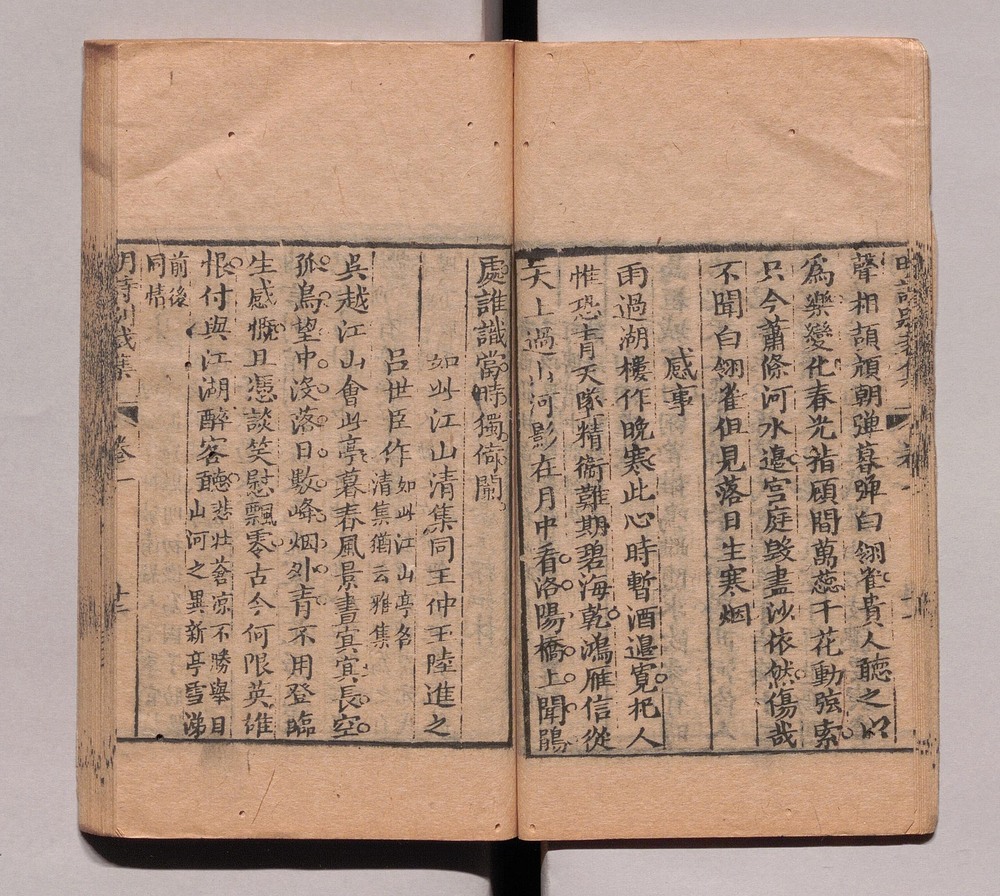 聲相頡頏朝弹暮弹白翎雀貴人聽之以
為樂變化春光指顧間萬蕊千花動弦索
只今蕭條河水邉宫庭毁盡沙依然傷哉
不聞白翎雀但見落日生寒烟
感事
雨過湖樓作晚寒此心時暫酒邉寛杞人
惟恐青天墜精衛難期碧海乾鴻雁信從
天上過山河影在月中看洛陽橋上聞鵑
處誰識當時獨倚闌
如此江山清集同王仲玉陸進之
吕世臣作如此江山亭名
清集猶云雅集
吳越江山會此亭暮春風景晝冥冥長空
孤鳥望中没落日數峰烟外青不用登臨
生感慨且憑談笑慰飄零古今何限英雄
恨付與江湖醉客聽悲壯蒼凉不勝舉目
山河之異新亭雪涕
前後
同情
明詩别裁集
卷一